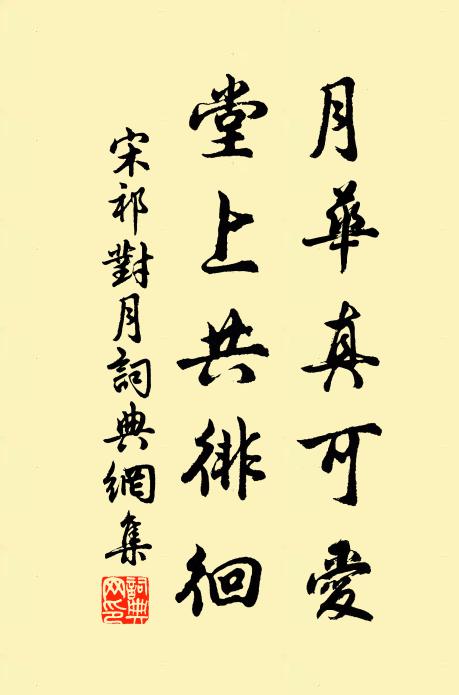 月華真可愛
堂上共徘徊
宋祁對月詞典網集
詞典网印